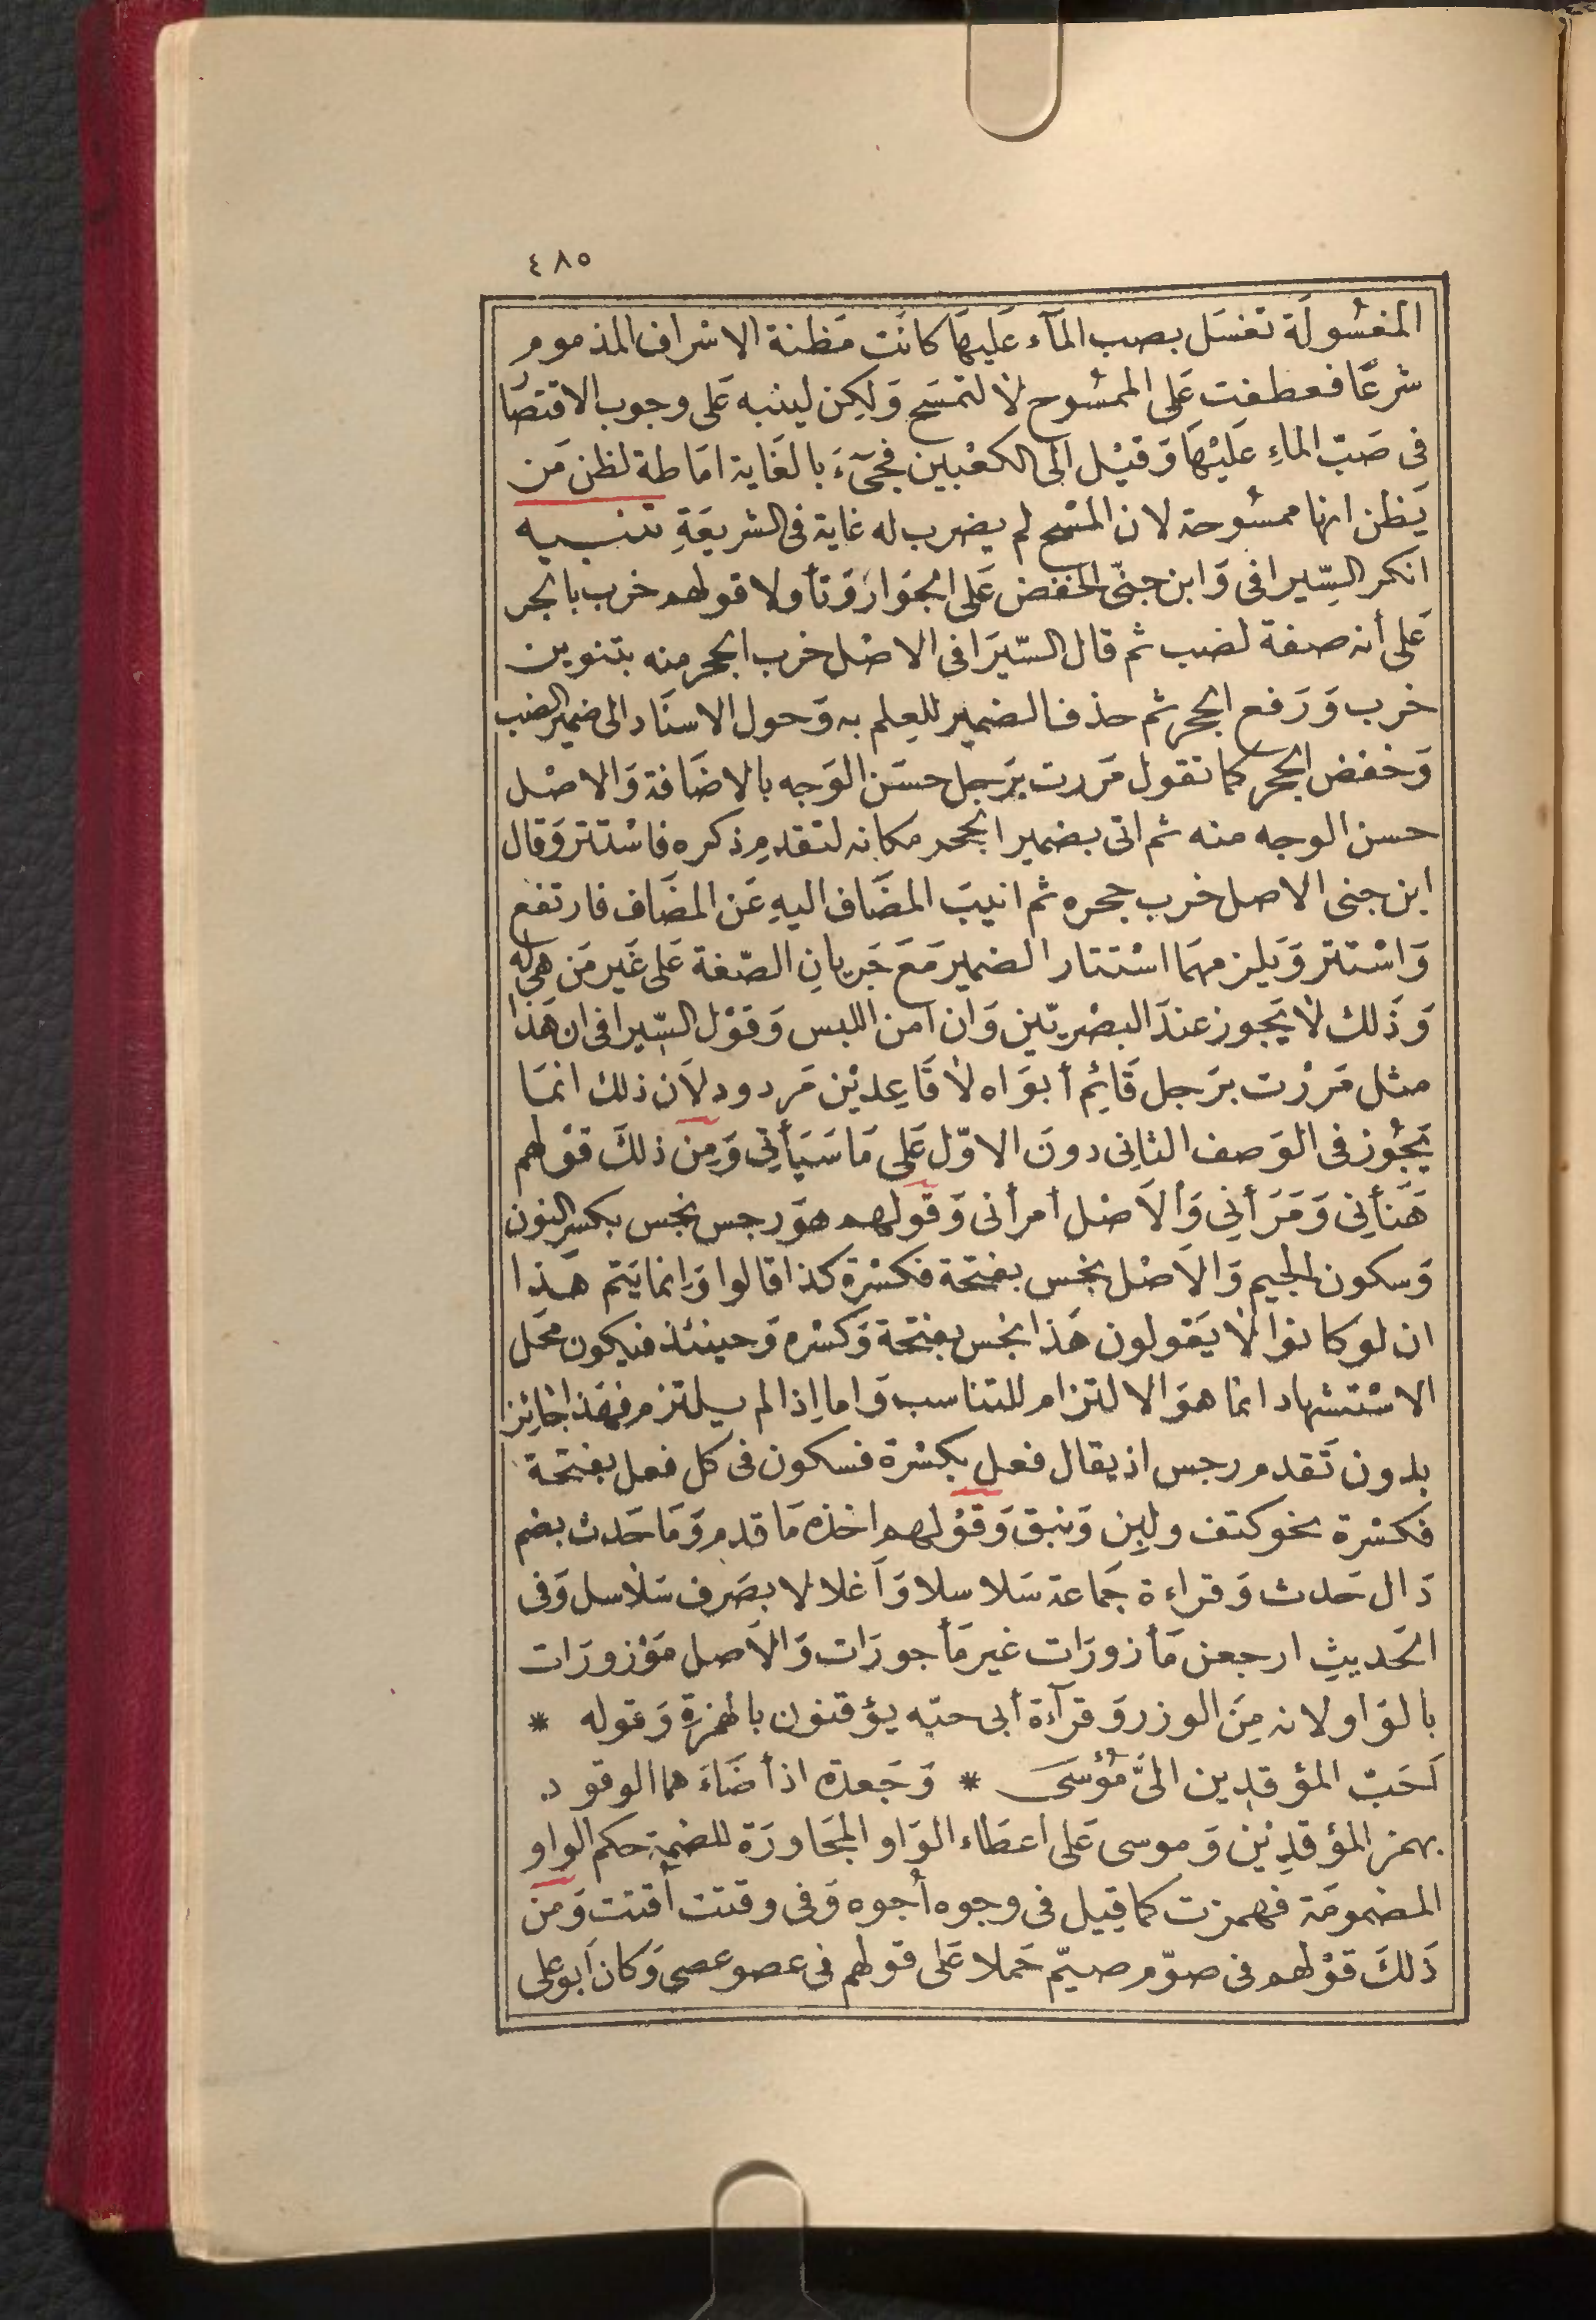 ٤٨٥
المغسُولَة تغسَل بصب المآء عَليهَا كانَت مَظنة الاسْراف المذموم
شرعًا فعطفت عَلى الممسُوح لا لتمسَح وَلكِن لينبه عَلى وجوب الاقتصَا
فى صَبّ الماءِ عَليْهَا وَقيْل الى الكعْبين فجىَٔ بالغَاية امَاطة لظن مَن
يَظن انها ممسُوحة لان المسْح لم يضرب له غاية فى الشريعَةِ تنبيه
انكر السِّيرافى وَابن جنىّ الخفض عَلى الجوَار وَتأولا قولهم خرب بالجر
عَلى أنه صفة لضب ثم قال السّيرَافى الاصْل خرب الجحر منه بتنوين
خرب وَرَفع الجحر ثم حذف الضمير للعِلم به وَحول الاسنَاد الى ضمير الضب
وَخفض الجحر كما تقول مَررت برَجل حسَن الوَجه بالاضَافة وَالاصْل
حسن الوجه منه ثم اتى بضمير الجحر مكانه لتقدم ذكره فاسْتتر وَقال
ابن جنى الاصل خرب جحره ثم انيبَ المضَاف اليهِ عَن المضَاف فارتفع
وَاسْتتر وَيلزمهمَا اسْتتار الضمير مَعَ جَريانِ الصّفة عَلى غَير مَن هى له
وَذَلك لا يَجوز عندَ البصْريّين وَان امن اللبس وَقوْل السّيرافى ان هَذا
مثل مَررْت برَجل قَائِم أبوَاه لا قَاعِديْن مَردود لاَن ذلك انمَا
يَجُوز فى الوَصف الثانِى دونَ الاوّل عَلى مَا سَيَأتِى وَمِن ذلكَ قوْلهم
هَنَأنِى وَمَرَأنِى وَالاَصْل أمرأنى وَقولهم هوَ رجس نجس بكسر النون
وَسكون الجيم وَالاَصْل نجس بفتحة فكسْرة كذا قالوا وَانما يَتم هَذا
ان لو كانوا لا يَقولون هَذا نجس بفتحَة وَكسْره وَحينئذ فيكون محَل
الاسْتشهاد انما هوَ الالتزام للتناسب وَاما إذا لم يلتزم فهَذا جَائِز
بدون تَقدم رجس اذ يقال فعل بكسْرة فسكون فى كل فعل بفتحة
فكسْرة نحو كتف ولبِن وَنبق وَقوْلهم اخذه مَا قدم وَمَا حَدث بضم
دَال حَدث وَقراءة جَماعة سَلا سلا وَأغلا لا بصَرف سَلاسل وَفى
الحَديثِ ارجعن مَأزورَات غير مَأجورَات وَالاَصل مَوْزورَات
بالوَاو لانه مِنَ الوزر وَقرآءة أبى حيّه يؤقنون بالهمزةِ وَقوله *
لَحَبّ المؤقدِين الىَّ مُؤسَى * وَجَعدة اذ أضَاءَ هما الوقود
بهمز المؤقدِيْن وَموسى عَلى اعطَاء الوَاو المجَاورَة للضمة حكم الواو
المضمومَة فهمزت كما قِيل فى وجوه أُجوه وَفى وقتت أقتت وَمن
ذَلكَ قوْلهم فى صوّم صيّم حَملا عَلى قولهم فى عصو عصى وَكان أبو على